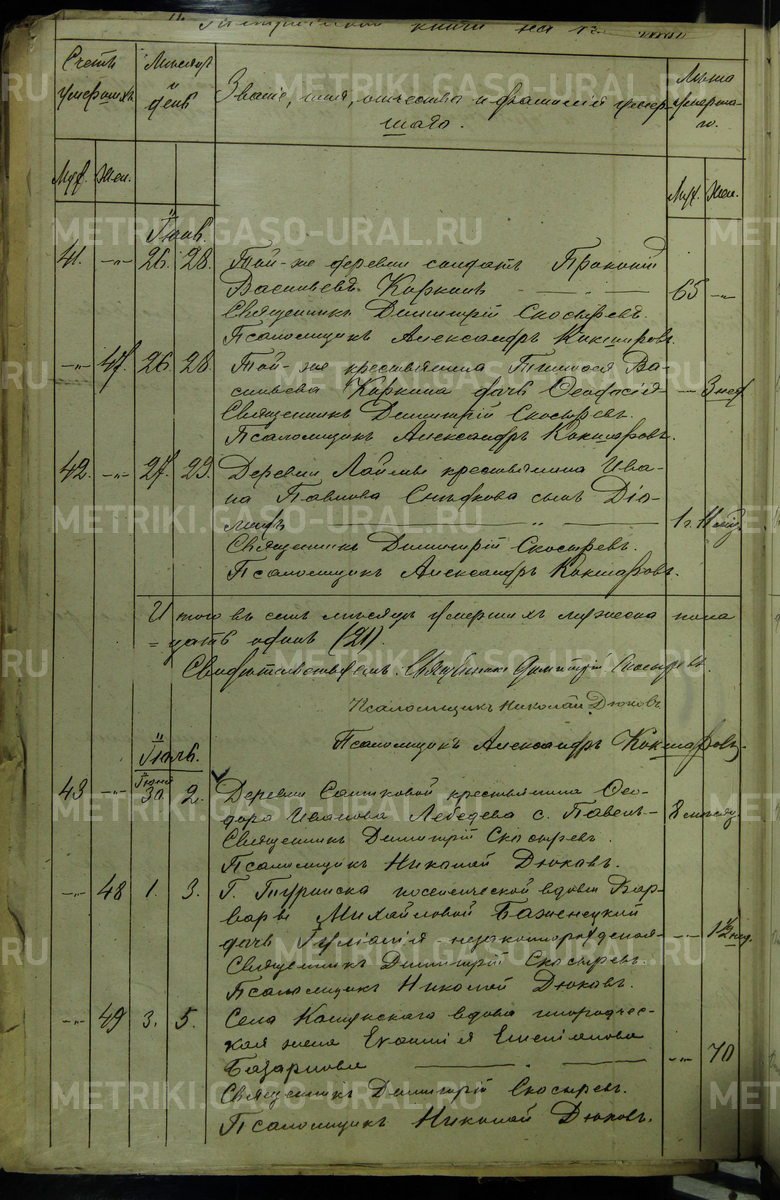 книги на 18
Счетъ умершихъ.
Мѣсяцъ и день
Званіе, имя, отчество и фамилія умершаго.
Лѣта умершаго.
Муж. Жен.
Муж. Жен.
Іюнь.
41. -"- 26. 28. Той-же деревни солдатъ Прокопій
Васильевъ Коркинъ 65 -"-
Священникъ Димитрій Скосыревъ.
Псаломщикъ Александръ Кокшаровъ.
-"- 47. 26. 28. Той-же крестьянина Тимоѳея Ва-
сильева Коркина дочь Ѳеодосія - 3 нед.
Священникъ Димитрій Скосыревъ.
Псаломщикъ Александръ Кокшаровъ.
42. -"- 27. 29. Деревни Лаймы крестьянина Ива-
на Павлова Снѣткова сынъ Діо-
мидъ 1 г. 11 мѣс.
Священникъ Димитрій Скосыревъ.
Псаломщикъ Александръ Кокшаровъ.
Итого въ семъ мѣсяцѣ умершихъ мужеска пола
-цать одинъ (21)
Свидѣтельствуемъ. Священникъ Димитрій Скосыревъ.
Псаломщикъ Николай Дюковъ.
Псаломщикъ Александръ Кокшаровъ.
Іюль.
Іюня
43 -"- 30. 2. Деревни крестьянина Ѳео-
дора Иванова Лебедева с. Павелъ - 8 мѣсяц.
Священникъ Димитрій Скосыревъ.
Псаломщикъ Николай Дюковъ.
-"- 48 1. 3. Г. Туринска поселенческой вдовы Вар-
вары Михайловой
дочь Іуліанія незаконнорожденная - -"- 1½ нед.
Священникъ Димитрій Скосыревъ.
Псаломщикъ Николай Дюковъ.
-"- 49 3. 5. Села Кошукскаго вдова инородчес-
кая жена Емеліанова
Базарнова -"- 70
Священникъ Димитрій Скосыревъ.
Псаломщикъ Николай Дюковъ.
METRIKI.GASO-URAL.RU